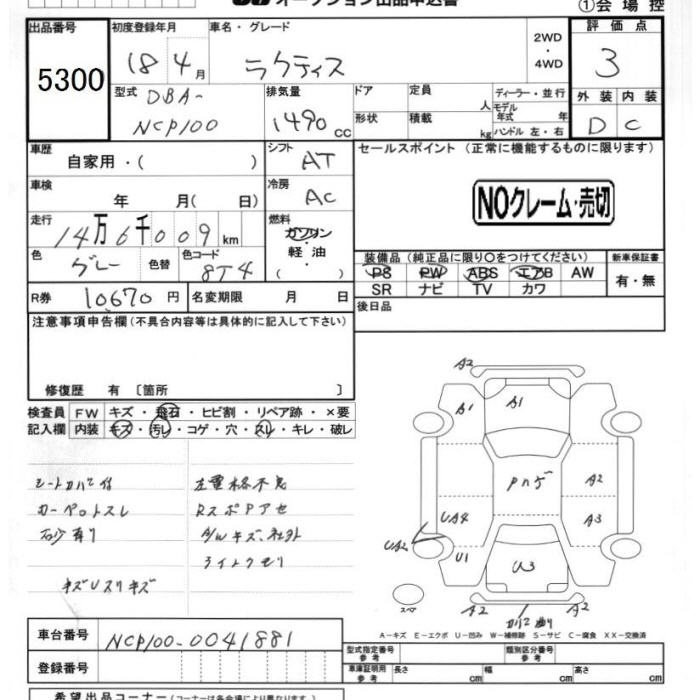 オークション出品申込書
①会場控
出品番号 初度登録年月 車名・グレード 評価点
5300 18 4月 ラクティス 2WD・4WD 3
型式 DBA- 排気量 ドア 定員 人 ディーラー・並行 外装 内装
NCP100 1490cc 形状 積載 kg モデル年式 年 ハンドル 左・右 D C
車歴 自家用・( ) シフト AT セールスポイント (正常に機能するものに限ります)
車検 年 月( 日) 冷房 AC NOクレーム・売切
走行 14万6千009km 燃料 ガソリン・軽油・( )
色 グレー 色替 色コード 8T4 装備品 (純正品に限り○をつけてください) 新車保証書
PS PW ABS エアB AW 有・無
SR ナビ TV カワ
R券 10670円 名変期限 月 日 後日品
注意事項申告欄 (不具合内容等は具体的に記入して下さい)
修復歴 有 〔箇所 〕
検査員 FW キズ・飛石・ヒビ割・リペア跡・×要
記入欄 内装 キズ・汚レ・コゲ・穴・スレ・キレ・破レ
シートカバー付
カーペットスレ Rスポアセ
石砂有り A/Wキズ、社外
ライトクモリ
A2
A1 A1
Pカラ A2
UA4 A3
UA2 U1 U3
スペ A2 A2
A－キズ E－エクボ U－凹み W－補修跡 S－サビ C－腐食 XX－交換済
車台番号 NCP100-0041881
登録番号
型式指定番号 参考 類別区分番号 参考
車庫証明用 参考 長さ cm 幅 cm 高さ cm
希望出品コーナー (コーナーは各会場により異なります)